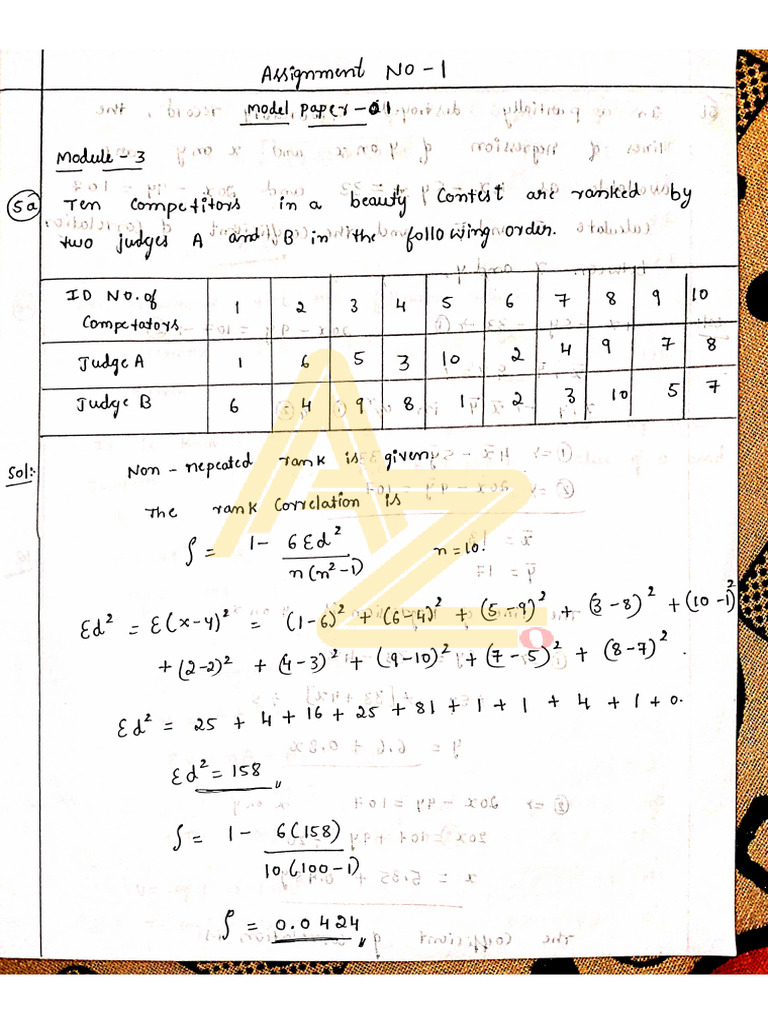 Assignment NO - 1
Model Paper - 01
Module - 3
5a Ten competitors in a beauty contest are ranked by
two judges A and B in the following order.
ID NO. of Competators 1 2 3 4 5 6 7 8 9 10
Judge A 1 6 5 3 10 2 4 9 7 8
Judge B 6 4 9 8 1 2 3 10 5 7
Sol:- Non - repeated rank is given
The rank correlation is
ρ = 1 - 6Σd² / n(n²-1) n = 10.
Σd² = Σ(x-y)² = (1-6)² + (6-4)² + (5-9)² + (3-8)² + (10-1)²
+ (2-2)² + (4-3)² + (9-10)² + (7-5)² + (8-7)².
Σd² = 25 + 4 + 16 + 25 + 81 + 1 + 1 + 4 + 1 + 0.
Σd² = 158
ρ = 1 - 6(158) / 10(100-1)
ρ = 0.0424